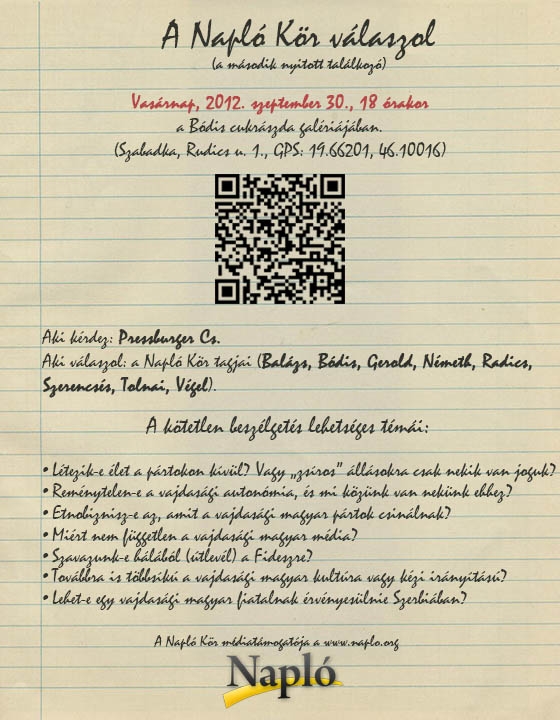 A Napló Kör válaszol
(a második nyitott találkozó)
Vasárnap, 2012. szeptember 30., 18 órakor
a Bódis cukrászda galériájában.
(Szabadka, Rudics u. 1., GPS: 19.66201, 46.10016)
Aki kérdez: Pressburger Cs.
Aki válaszol: a Napló Kör tagjai (Balázs, Bódis, Gerold, Németh, Radics,
Szerencsés, Tolnai, Végel).
A kötetlen beszélgetés lehetséges témái:
• Létezik-e élet a pártokon kívül? Vagy „zsíros" állásokra csak nekik van joguk?
• Reménytelen-e a vajdasági autonómia, és mi közünk van nekünk ehhez?
• Etnobiznisz-e az, amit a vajdasági magyar pártok csinálnak?
• Miért nem független a vajdasági magyar média?
• Szavazunk-e hálából (útlevél) a Fideszre?
• Továbbra is többsíkú a vajdasági magyar kultúra vagy kézi irányítású?
• Lehet-e egy vajdasági magyar fiatalnak érvényesülnie Szerbiában?
A Napló Kör médiatámogatója a www.naplo.org
Napló